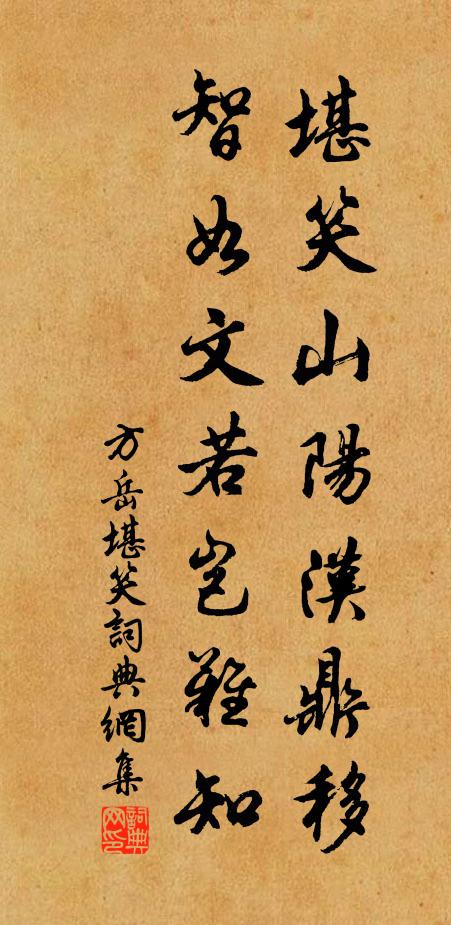 堪笑山陽漢鼎移
智如文若豈難知
方岳堪笑詞典網集
詞典網印